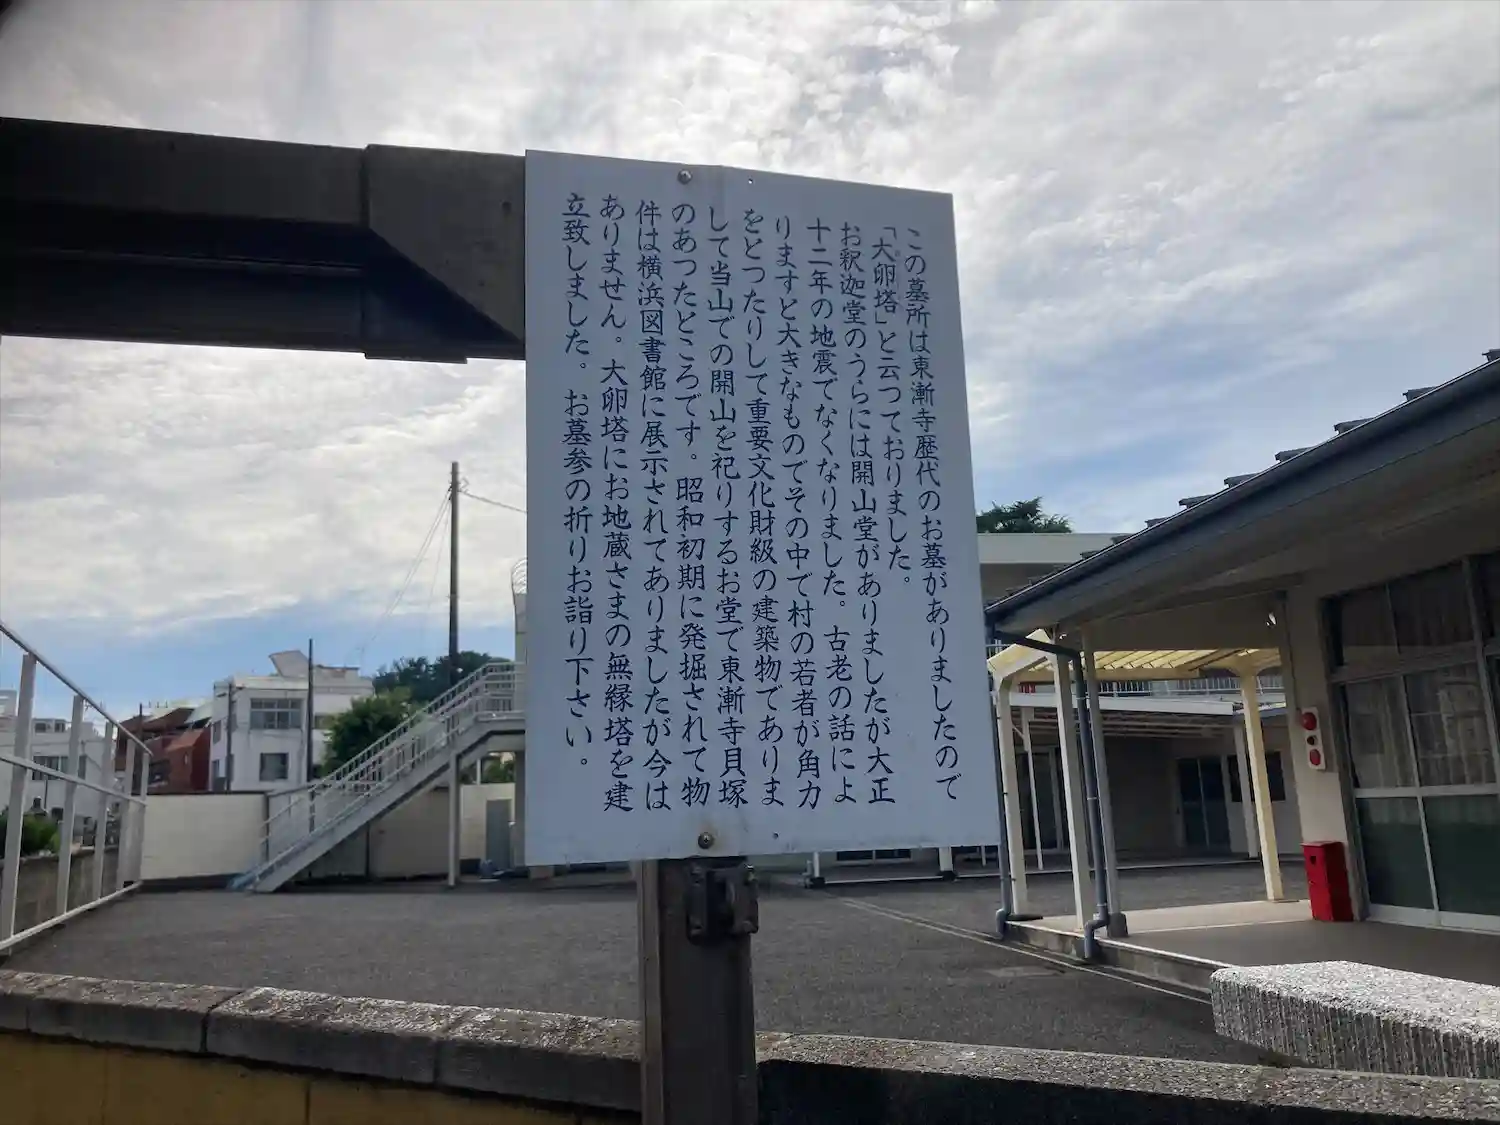 この墓所は東漸寺歴代のお墓がありましたので
「大卵塔」と云つておりました。
お釈迦堂のうらには開山堂がありましたが大正
十二年の地震でなくなりました。古老の話によ
りますと大きなものでその中で村の若者が角力
をとつたりして重要文化財級の建築物でありま
して当山での開山を祀りするお堂で東漸寺貝塚
のあつたところです。昭和初期に発掘されて物
件は横浜図書館に展示されてありましたが今は
ありません。大卵塔にお地蔵さまの無縁塔を建
立致しました。お墓参の折りお詣り下さい。